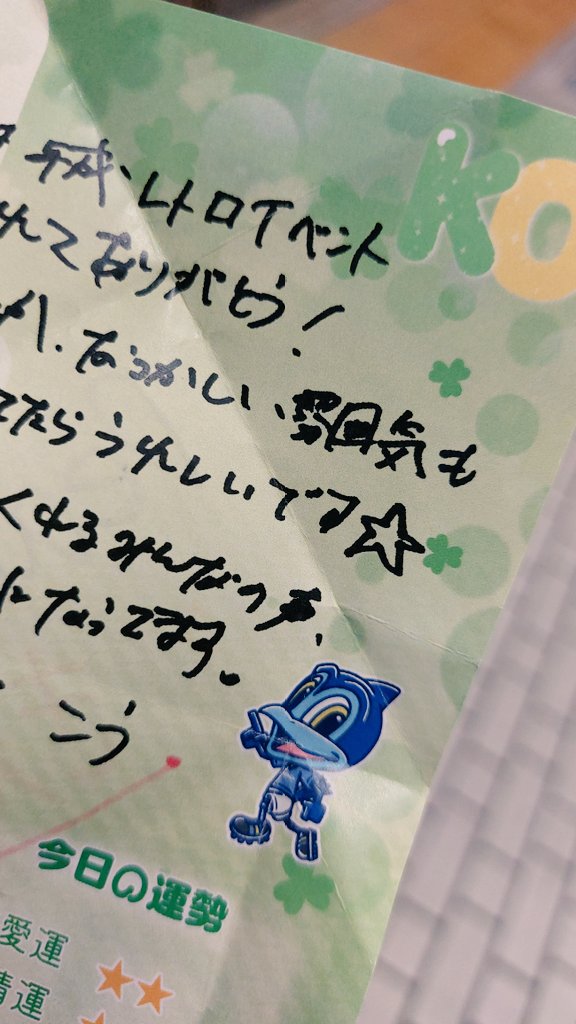 KO
平成レトロイベント
れてありがとう!
なつかしい雰囲気も
てたらうれしいです☆
くれるみんなの声、
になってます。
こう
今日の運勢
愛運
情運